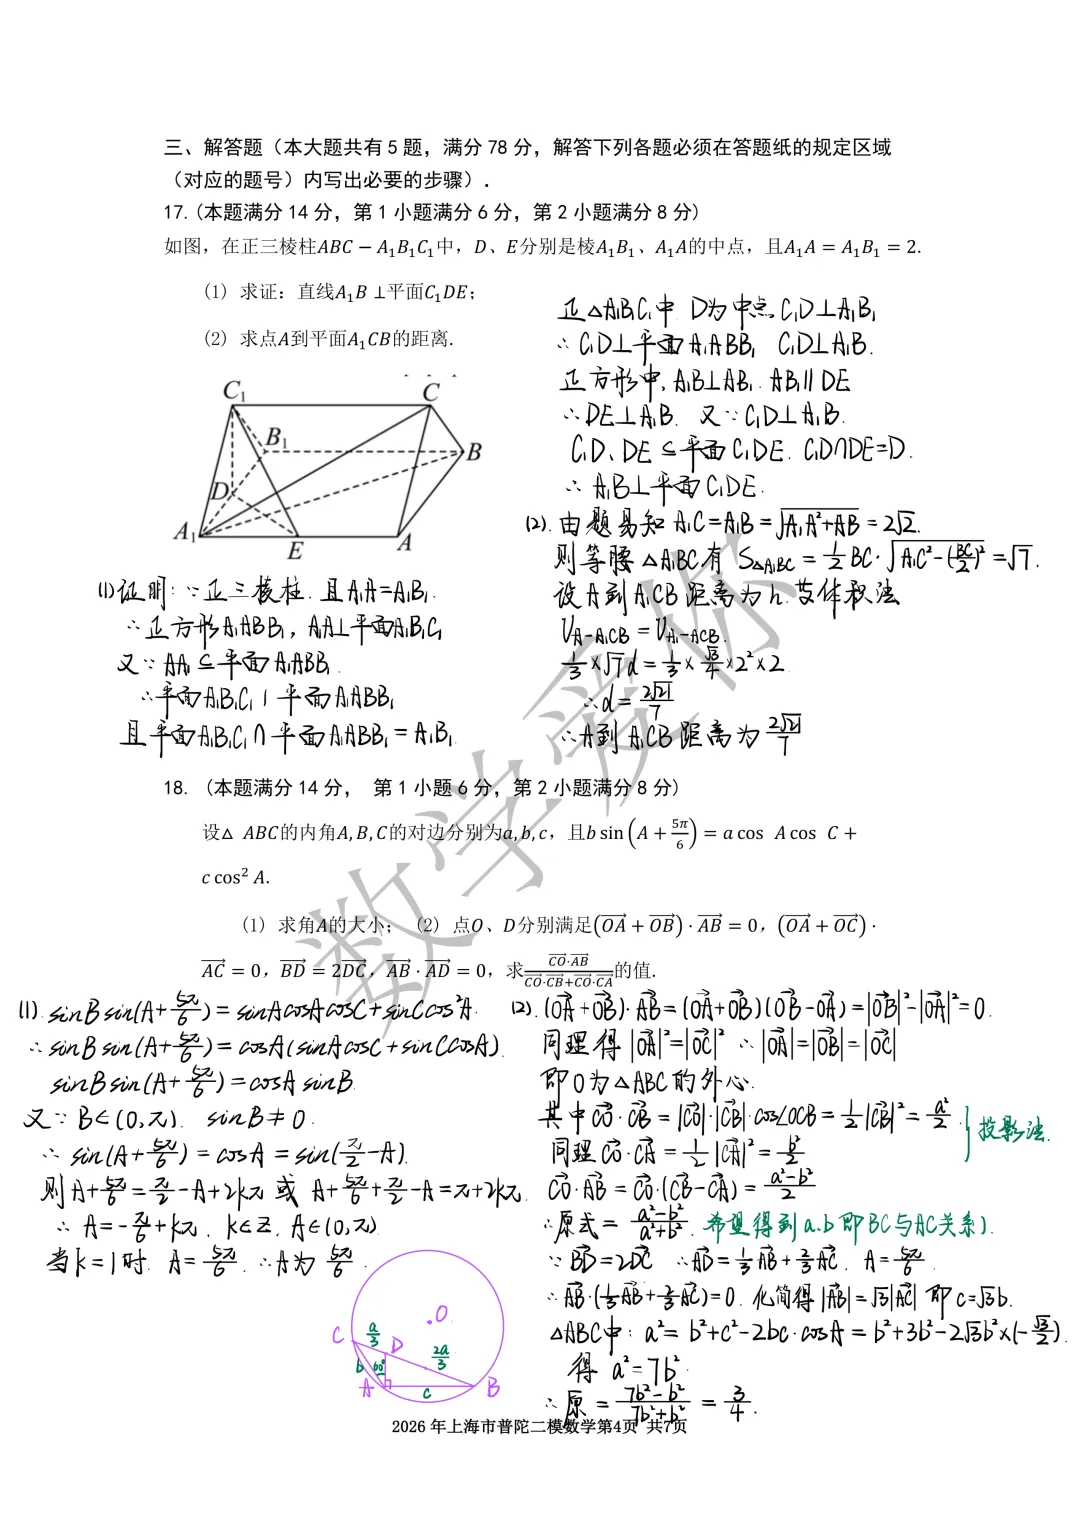 三、解答题（本大题共有5题，满分78分，解答下列各题必须在答题纸的规定区域
（对应的题号）内写出必要的步骤）.
17.(本题满分14分，第1小题满分6分，第2小题满分8分)
如图，在正三棱柱ABC − A₁B₁C₁中，D、E分别是棱A₁B₁、A₁A的中点，且A₁A = A₁B₁ = 2.
(1) 求证：直线A₁B ⊥平面C₁DE；
(2) 求点A到平面A₁CB的距离.
C₁
C
B₁
B
D
A₁
E
A
(1)证明：∵正三棱柱.且A₁A=A₁B₁.
∴正方形A₁ABB₁，A₁A⊥平面A₁B₁C₁
又∵AA₁⊆平面A₁ABB₁.
∴平面A₁B₁C₁⊥平面A₁ABB₁
且平面A₁B₁C₁∩平面A₁ABB₁=A₁B₁.
正△A₁B₁C₁中 D为中点,C₁D⊥A₁B₁
∴C₁D⊥平面A₁ABB₁ C₁D⊥A₁B.
正方形中,A₁B⊥AB₁.AB₁∥DE
∴DE⊥A₁B. 又∵C₁D⊥A₁B.
C₁D、DE⊆平面C₁DE. C₁D∩DE=D.
∴A₁B⊥平面C₁DE.
(2).由题易知A₁C=A₁B=√(A₁A²+AB)=2√2.
则等腰△A₁BC有S△A₁BC=½BC·√(A₁C²-(BC/2)²)=√7.
设A到A₁CB距离为h.等体积法
V_{A-A₁CB}=V_{A₁-ACB}.
⅓×√7d=⅓×√3/4×2²×2
∴d=2√21/7
∴A到A₁CB距离为2√21/7
18. (本题满分14分， 第1小题6分，第2小题满分8分)
设△ ABC的内角A, B, C的对边分别为a, b, c，且b sin (A + 5π/6) = a cos A cos C +
c cos² A.
(1) 求角A的大小； (2) 点O、D分别满足(OA→ + OB→) · AB→ = 0，(OA→ + OC→) ·
AC→ = 0，BD→ = 2DC→，AB→ · AD→ = 0，求 CO→·AB→/(CO→·CB→+CO→·CA→) 的值.
(1). sinBsin(A+5π/6)=sinAcosAcosC+sinCcos²A.
∴sinBsin(A+5π/6)=cosA(sinAcosC+sinCcosA).
sinBsin(A+5π/6)=cosAsinB.
又∵B∈(0,π). sinB≠0.
∴sin(A+5π/6)=cosA=sin(π/2-A).
则A+5π/6=π/2-A+2kπ或 A+5π/6+π/2-A=π+2kπ.
∴A=-π/6+kπ. k∈Z. A∈(0,π)
当k=1时. A=5π/6. ∴A为5π/6.
(2).(OA→+OB→)·AB→=(OA→+OB→)(OB→-OA→)=|OB→|²-|OA→|²=0.
同理得|OA→|²=|OC→|² ∴|OA→|=|OB→|=|OC→|
即O为△ABC的外心.
其中CO→·CB→=|CO→|·|CB→|·cos∠OCB=½|CB→|²=a²/2.
同理CO→·CA→=½|CA→|²=b²/2
投影法.
CO→·AB→=CO→·(CB→-CA→)=(a²-b²)/2
∴原式=(a²-b²)/(a²+b²).希望得到a.b即BC与AC关系).
∵BD→=2DC→ ∴AD→=⅓AB→+⅔AC→. A=5π/6.
∴AB→·(⅓AB→+⅔AC→)=0.化简得|AB→|=√3|AC→|即c=√3b.
△ABC中：a²=b²+c²-2bc·cosA=b²+3b²-2√3b²×(-√3/2).
得 a²=7b².
∴原=(7b²-b²)/(7b²+b²)=3/4.
.O
C
a/3
D
2a/3
b
60°
A
c
B
2026年上海市普陀二模数学第4页 共7页
数学爱你